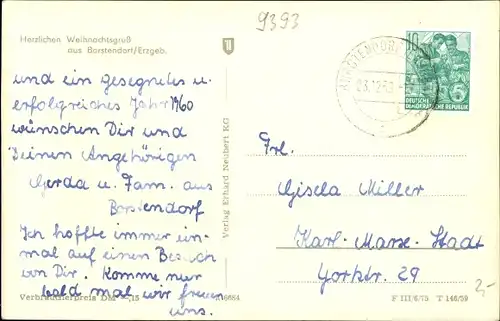 9393
Herzlichen Weihnachtsgruß
aus Borstendorf/Erzgeb.
und ein gesegnetes u.
erfolgreiches Jahr 1960
wünschen Dir und
Deinen Angehörigen
Gerda u. Fam. aus
Borstendorf
Ich hoffte immer ein-
mal auf einen Besuch
von Dir. Komme nur
bald mal wir freuen
uns.
Verbraucherpreis DM -,15
Verlag Erhard Neubert KG
10
5
DEUTSCHE
DEMOKRATISCHE REPUBLIK
Frl.
Gisela Miller
Karl-Marx-Stadt
Yorkstr. 29
F III/6/75 T 146/59
2,-